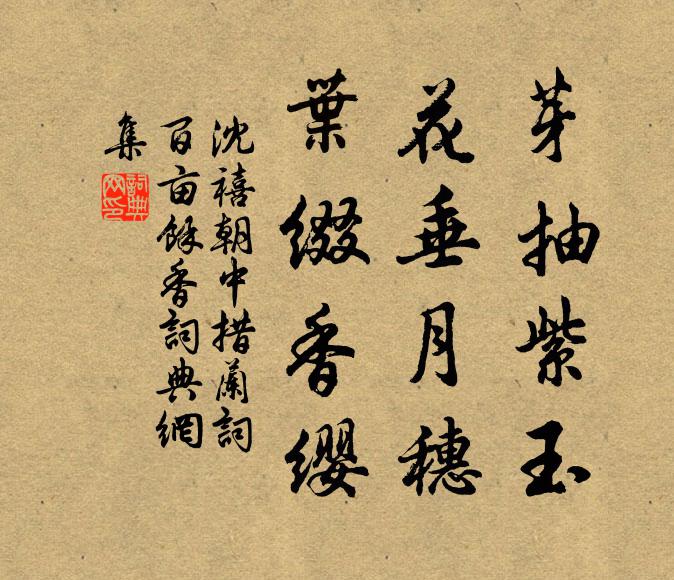 芽抽紫玉
花垂月穗
葉綴香纓
沈禧朝中措蘭詞
百亩餘香詞典網
集
詞典
网印